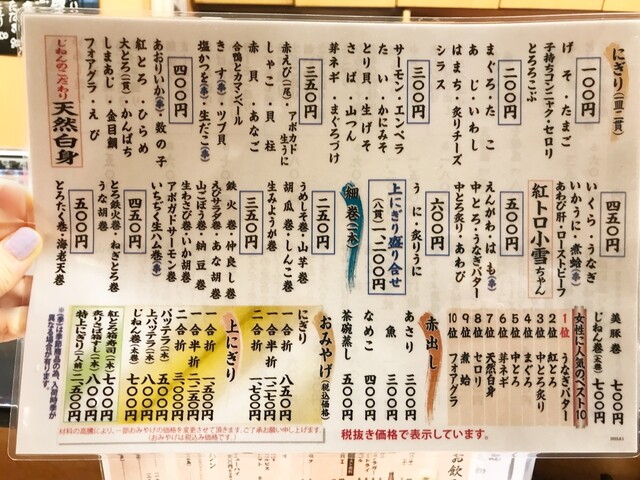 にぎり(一皿二貫)
一〇〇円
げそ・たまご
子持ちコンニャク・セロリ
とろろこぶ
二〇〇円
まぐろ・たこ
あじ・いわし
はまち・炙りチーズ
シラス
三〇〇円
サーモン・エンペラ
たい・かにみそ
とり貝・生げそ
さば・山つん
芽ネギ・まぐろづけ
三五〇円
赤えび(一尾)・アボカド生うに
しゃこ・貝柱
赤貝・あなご
合鴨とカマンベール
きす(季)・ツブ貝
塩かつを(季)・生だこ(季)
四〇〇円
あおりいか(季)・数の子
紅とろ・ひらめ
大とろ(一貫)・かんぱち
しまあじ・金目鯛
フォアグラ・えび
じねんのこだわり
天然白身
四五〇円
いくら・うなぎ
いかうに・煮蛤(季)
あわび肝・ローストビーフ
紅トロ小雪ちゃん
五〇〇円
えんがわ・はも(季)
中とろ・うなぎバター
中とろ炙り・あわび
六〇〇円
うに・炙りうに
上にぎり盛り合せ
(八貫)一、二〇〇円
細巻(一本)
二五〇円
うめしそ巻・山芋巻
胡瓜巻・しんこ巻
生みようが巻
三五〇円
鉄火巻・仲良し巻
えびサラダ巻・あな胡巻
山ごぼう巻・納豆巻
生わさび巻・いか胡巻
アボガドサーモン巻
いちぢく生ハム巻(季)
四五〇円
とろ鉄火巻・ねぎとろ巻
うな胡巻
五五〇円
とろたく巻・海老天巻
美豚巻 七〇〇円
じねん巻(太巻) 七〇〇円
女性に人気のベスト10
1位 うなぎバター
2位 紅とろ
3位 中とろ炙り
4位 まぐろ
5位 中とろ
6位 芽ネギ
7位 天然白身
8位 セロリ
9位 煮蛤
10位 フォアグラ
赤出し
あさり 三〇〇円
魚 三〇〇円
なめこ 四〇〇円
茶碗蒸し 五〇〇円
おみやげ(税込価格)
にぎり
一合折 八五〇円
一合半折 一、二七〇円
二合折 一、七〇〇円
上にぎり
一合折 一、五〇〇円
一合半折
二合折 三、〇〇〇円
バッテラ(一本)
上バッテラ(一本)
じねん巻(太巻) 七〇〇円
紅とろ箱寿司(一本) 七〇〇円
炙りさば箱すし(一本) 八〇〇円
特上にぎり(一人前) 二、一五〇円
※(季)は季節商品の為、入荷時季が異なる場合が有ります。
材料の高騰により、一部おみやげの価格を変更させて頂きます。ご了承お願い申し上げます。
(おみやげは税込み価格です。)
税抜き価格で表示しています。